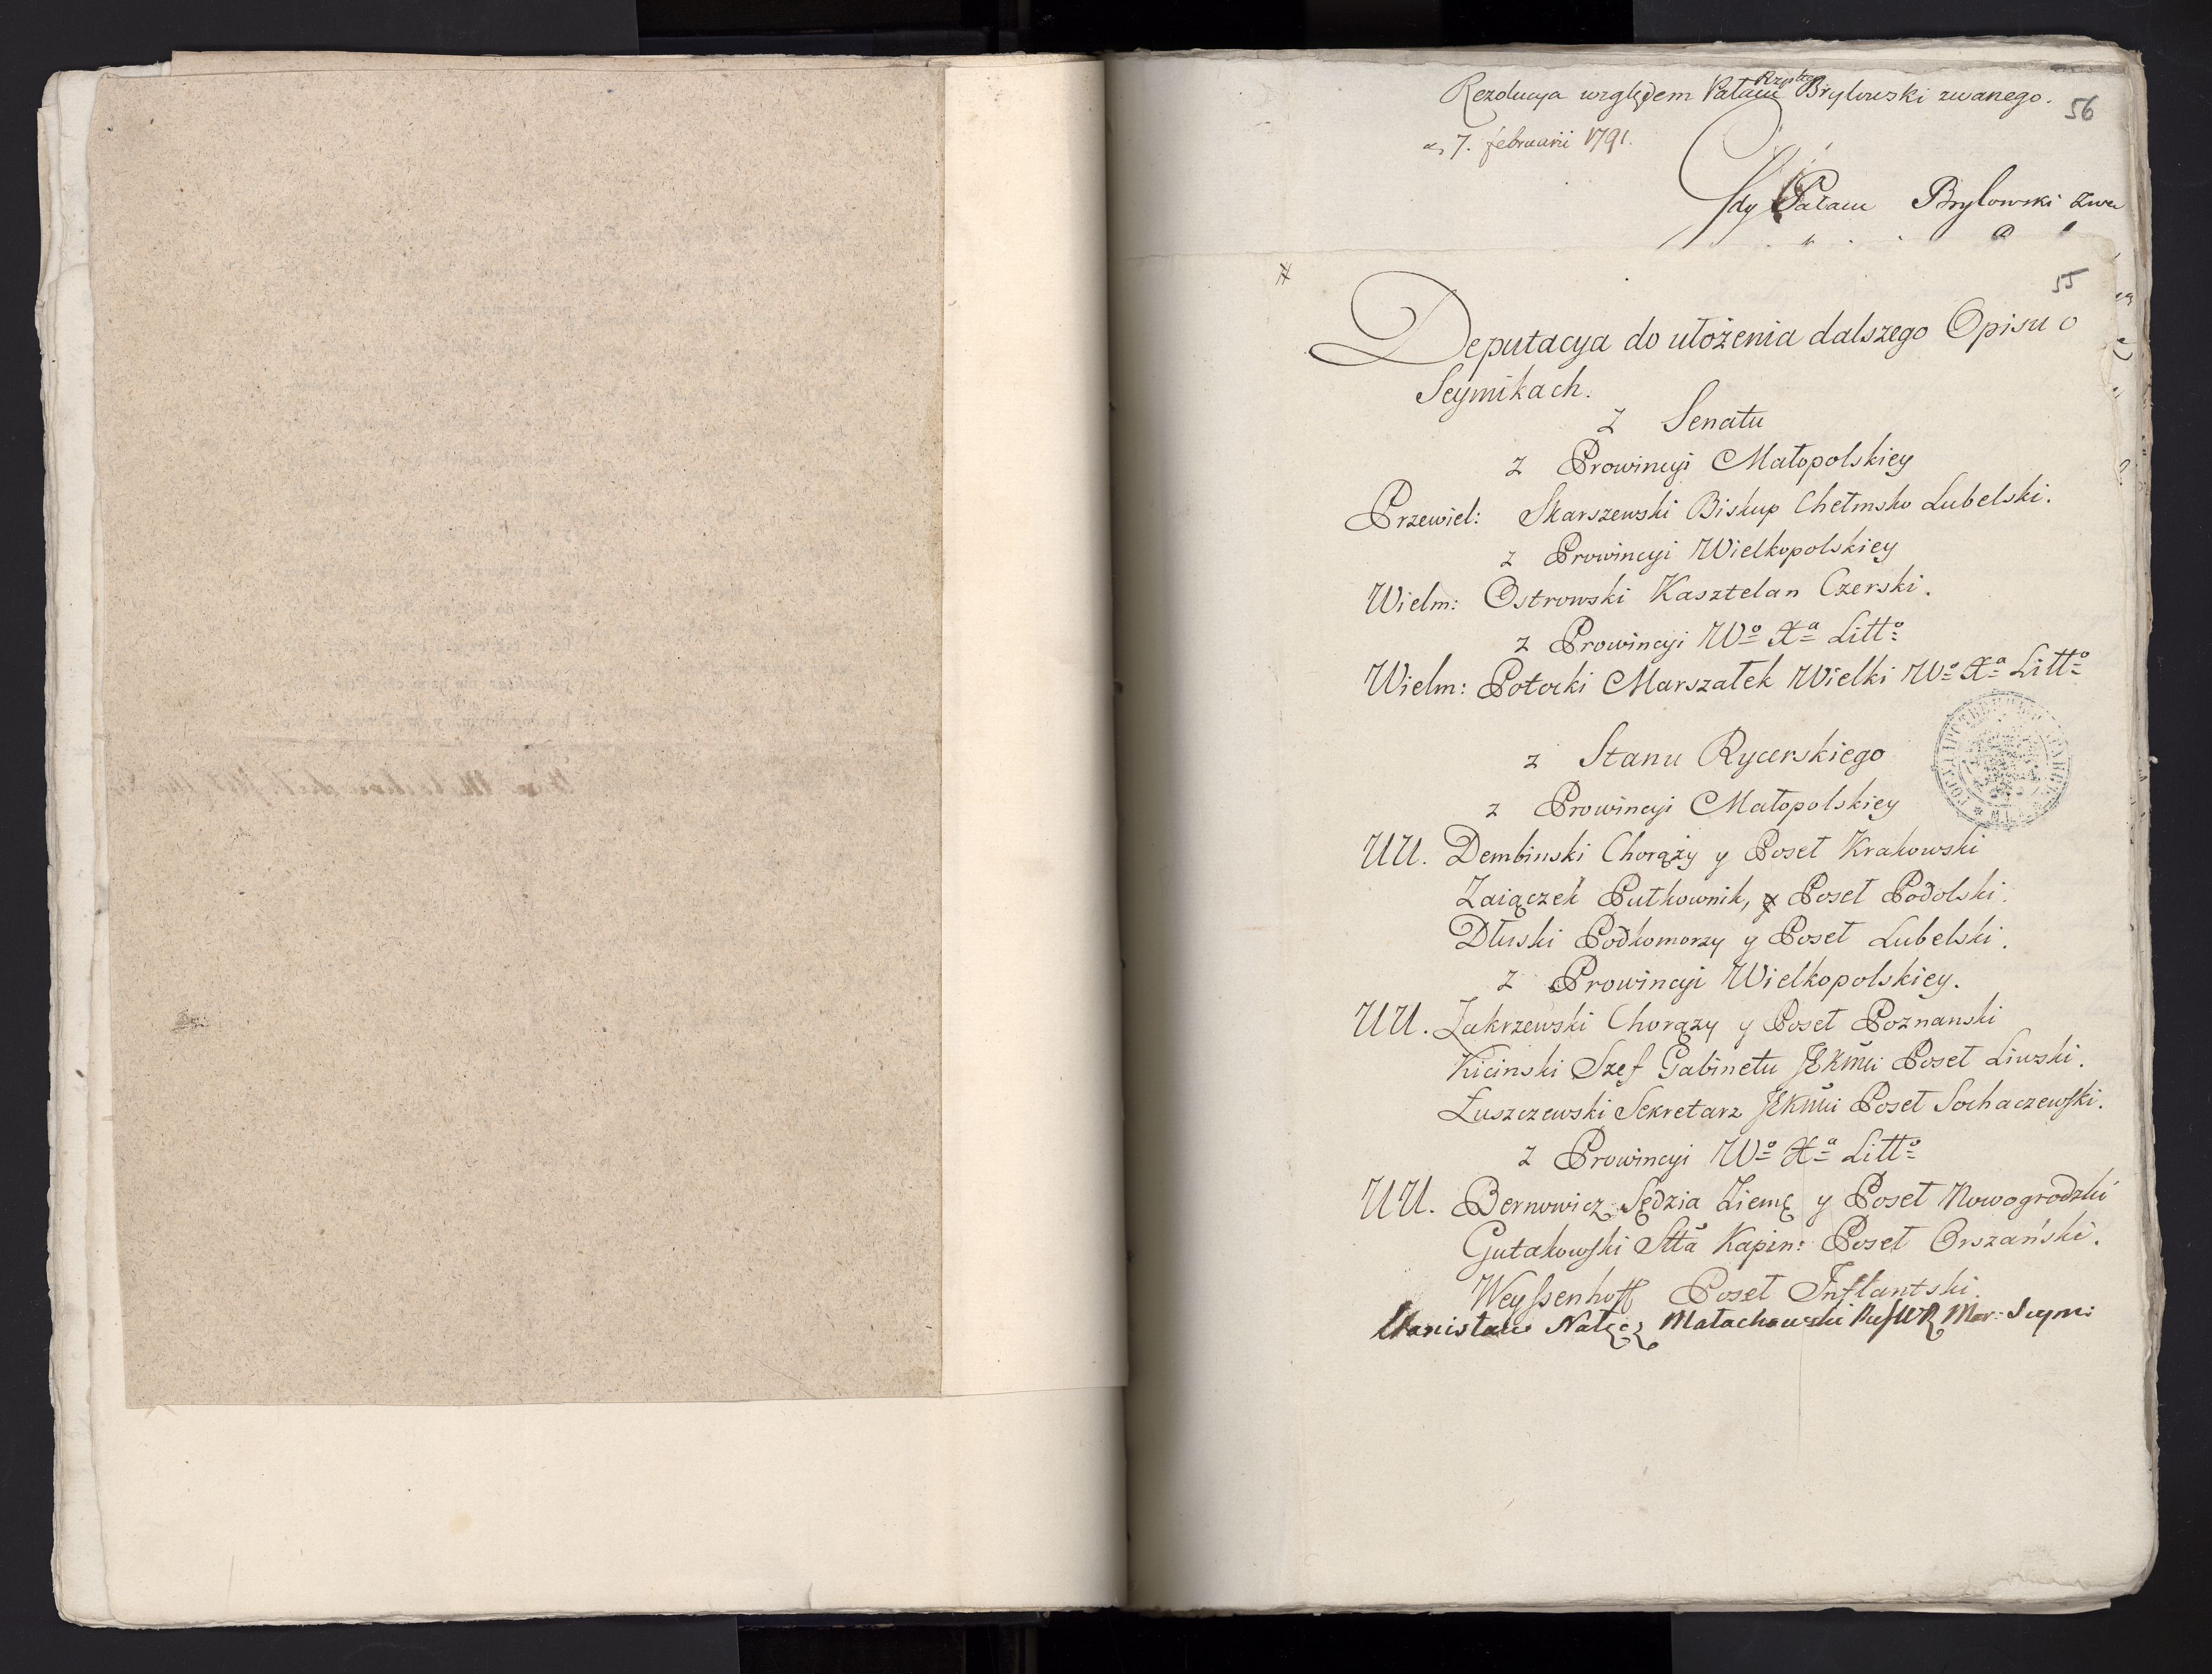 Rezolucya względem Pałacu Rzpltey Brylowski zwanego.
56
7. februarii 1791.
Gdy Pałacu Brylowski zwa
55
Deputacya do ułożenia dalszego Opisu o
Seymikach.
z Senatu
z Prowincyi Małopolskiey
Przewiel: Skarszewski Biskup Chełmsko Lubelski.
z Prowincyi Wielkopolskiey
Wielm: Ostrowski Kasztelan Czerski.
z Prowincyi Wº Xª Littº
Wielm: Potocki Marszałek Wielki Wº Xª Littº
z Stanu Rycerskiego
z Prowincyi Małopolskiey
UU. Dembinski Chorąży y Poseł Krakowski
Zaiączek Pułkownik, y Poseł Podolski.
Dłuski Podkomorzy y Poseł Lubelski.
z Prowincyi Wielkopolskiey.
UU. Zakrzewski Chorązy y Poseł Poznanski
Kicinski Szef Gabinetu JEKMci Poseł Liwski.
Łuszczewski Sekretarz JEKMci Poseł Sochaczewski.
z Prowincyi Wº Xª Littº
UU. Bernowicz Sędzia Ziemę y Poseł Nowogrodzki
Gutakowski Stta Kapin: Poseł Orszański.
Weyssenhoff Poseł Inflantski.
Stanisław Nałęcz Małachowski Mar: Seym: